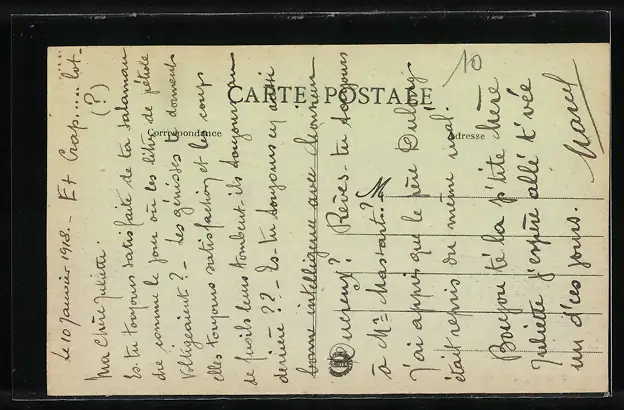 CARTE POSTALE
Correspondance
Adresse
10
le 10 Janvier 1918. - Et Crapi..... lot-.....
Ma Chère Juliette. (?)
Es tu toujours satisfaite de ta salaman
dre comme le jour où les litres de pétrole
voltigeaient? - Les génisses te donnent
elles toujours satisfaction et les coups
de fusils leurs tombent-ils toujours au
derrière?? - Es-tu toujours en aussi
bonne intelligence avec honneur
Rêves-tu toujours
à Mr Massart?
J'ai appris que le père Dubois
était repris du même mal.
Bonjou té la p'tite chère
Juliette j'espère allé t'vée
un d'ces jours. Marcel